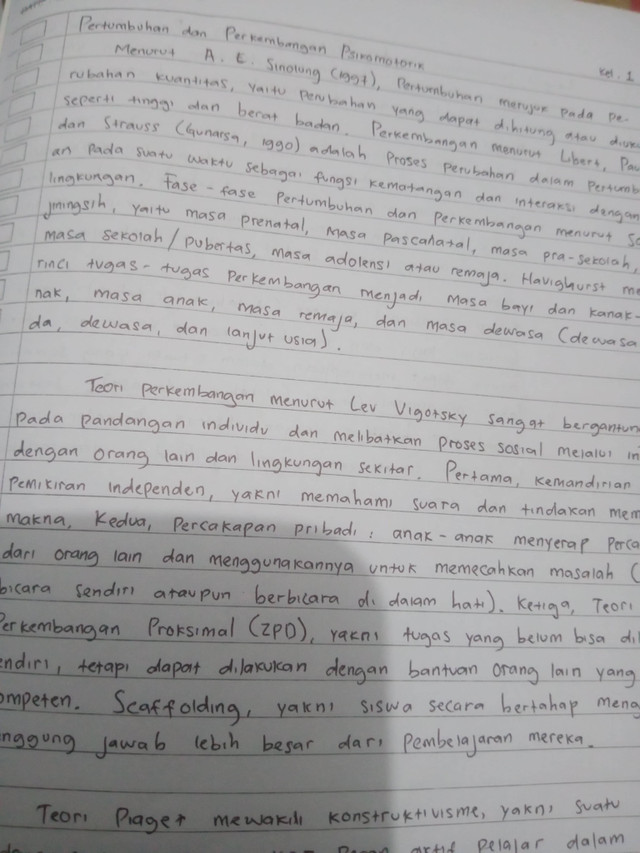 Pertumbuhan dan Perkembangan Psikomotorik
Kel. 1
Menurut A. E. Sinolung (1997), Pertumbuhan merujuk pada pe-
rubahan kuantitas, yaitu perubahan yang dapat dihitung atau diuk
seperti tinggi dan berat badan. Perkembangan menurut Libert, Pau
dan Strauss (Gunarsa, 1990) adalah proses perubahan dalam pertumb
an pada suatu waktu sebagai fungsi kematangan dan interaksi dengan
lingkungan. Fase-fase pertumbuhan dan perkembangan menurut So
jiningsih, yaitu masa prenatal, masa pascanatal, masa pra-sekolah,
masa sekolah/pubertas, masa adolensi atau remaja. Havighurst me
rinci tugas-tugas perkembangan menjadi masa bayi dan kanak-
nak, masa anak, masa remaja, dan masa dewasa (dewasa
da, dewasa, dan lanjut usia).
Teori perkembangan menurut Lev Vigotsky sangat bergantun
pada pandangan individu dan melibatkan proses sosial melalui in
dengan orang lain dan lingkungan sekitar. Pertama, kemandirian
pemikiran independen, yakni memahami suara dan tindakan mem
makna, Kedua, percakapan pribadi: anak-anak menyerap perca
dari orang lain dan menggunakannya untuk memecahkan masalah (
bicara sendiri ataupun berbicara di dalam hati). Ketiga, Teori
Perkembangan Proksimal (ZPD), yakni tugas yang belum bisa dil
endiri, tetapi dapat dilakukan dengan bantuan orang lain yang
ompeten. Scaffolding, yakni siswa secara bertahap meng
nggung jawab lebih besar dari pembelajaran mereka.
Teori Piaget mewakili konstruktivisme, yakni suatu
aktif pelajar dalam